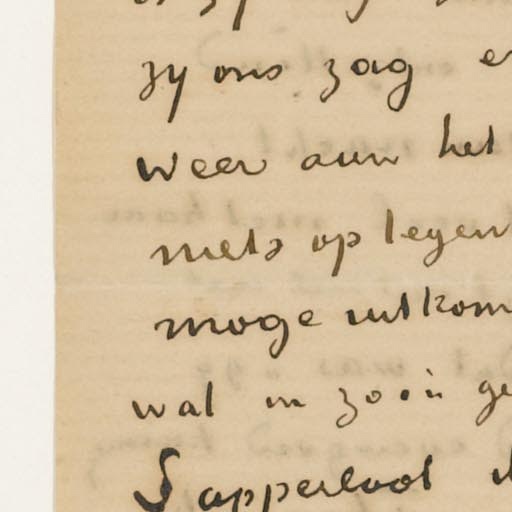 zy ons zag
weer aan het
niets op tegen
moge uitkom
wat in zoo'n ge
Sapperloot